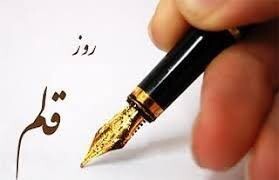 روز
قلم